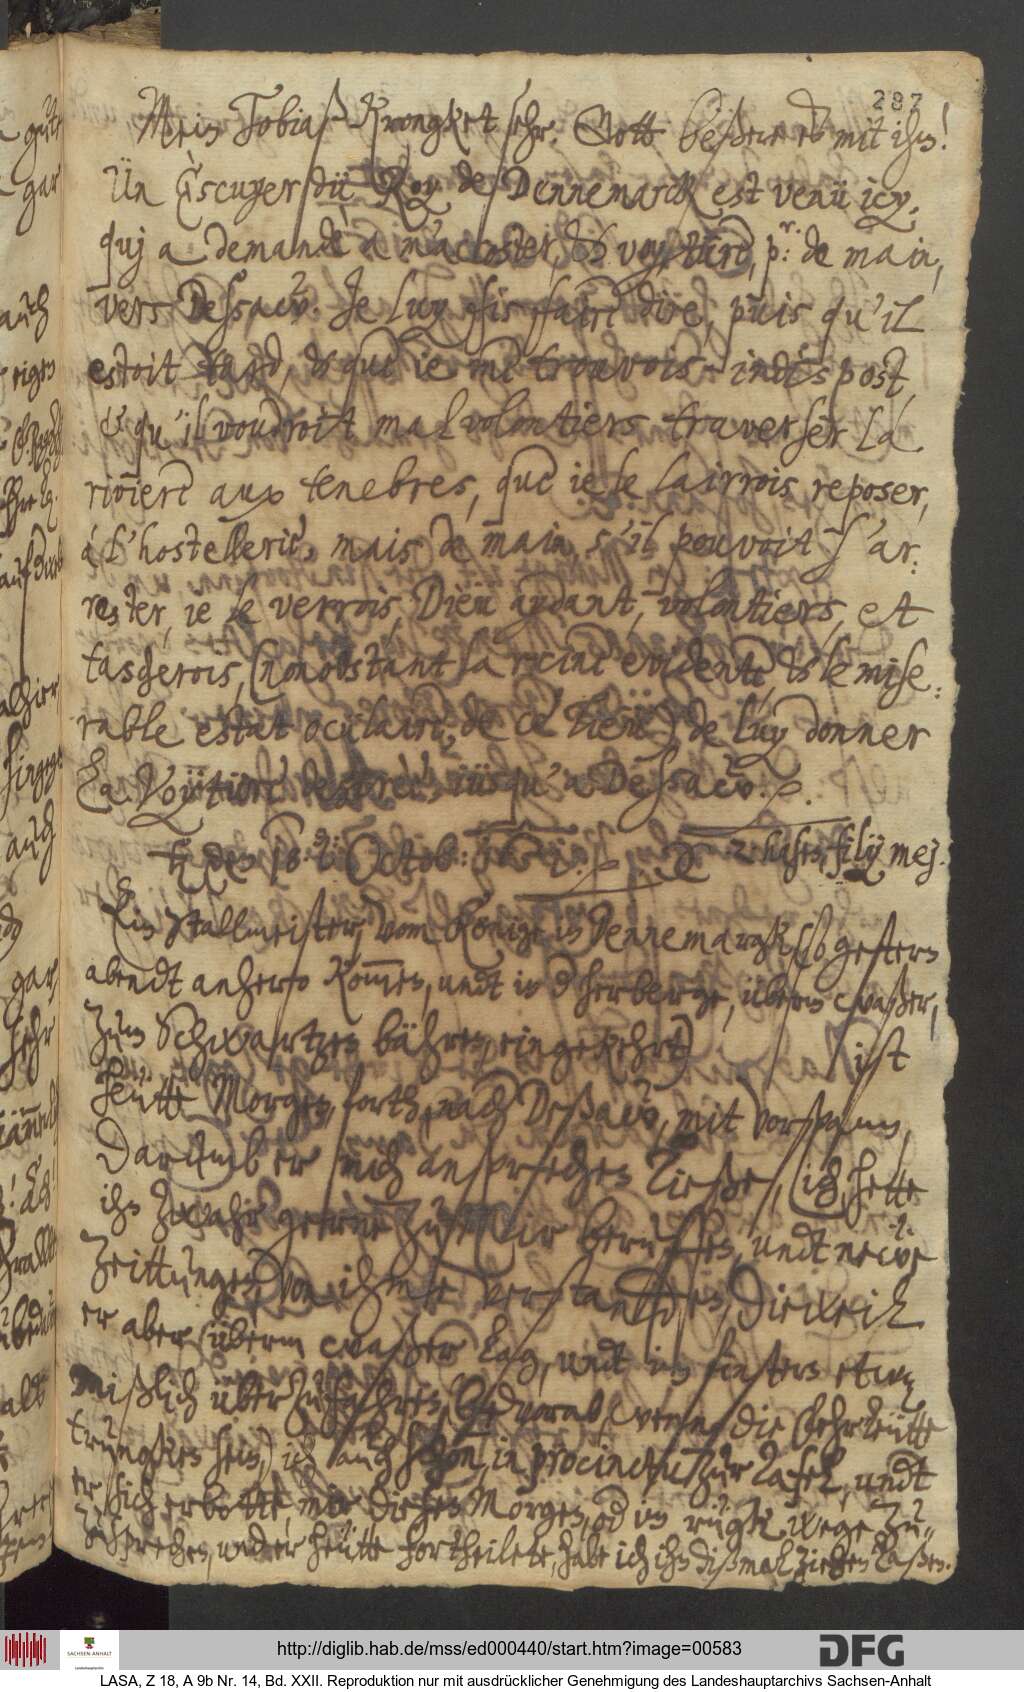 287
Mein Tobiaß krengket sehr. Gott beßere es mit ihm!
Ün Escuyer dü Roy de Dennemarck est venü icy,
quj a demandè a m'accoster, & voytüre, p.r de main,
vers Dessaw. Je luy fis faire dire, puis qu'il
estoit tard, & que ie me trouvois indispost,
& qu'il voudroit mal volontiers traverser la
riviere aux tenebres, que ie le lairrois reposer,
á l'hostellerie, mais de main, s'il pouvoit s'ar-
rester, ie le verrois, Dieu aydant, volontiers, et
tascherois, (nonobstant la rüine evidente, & le mise-
rable estat oculaire, de ce lieu) de luy donner
la voytüre desirèe, iüsqu'a Dessaw.
den 18. Octob:
2 hasen, filij mej.
Ein Stallmeister, vom Könige in Dennemargk, (so gestern
abendt anhero kommen, undt in der herberge, überm waßer,
zum Schwartzen bähren, eingekehrt) ist
heütte Morgen, forth, nach Deßaw, mit vorspann,
Darumb er mich ansprechen ließe, ich hette
ihn zwahr gerne zu mir beruffen, undt newe
Zeittungen, von ihme verstanden, dieweil
er aber, überm waßer lag, undt im finstern etwas
mißlich überzufahren, (bevorab, wenn die Fehrleütte
trungken sein,) ich auch schon, in procinctu zur Tafel, undt
er sich erbotte, mir diesen Morgen, oder im rügkwege zu-
zusprechen, und er heütte fortheilete, habe ich ihn dißmal ziehen laßen.
gar
auch
auch
gar
sehr
http://diglib.hab.de/mss/ed000440/start.htm?image=00583
SACHSEN-ANHALT
Landeshauptarchiv
DFG
LASA, Z 18, A 9b Nr. 14, Bd. XXII. Reproduktion nur mit ausdrücklicher Genehmigung des Landeshauptarchivs Sachsen-Anhalt